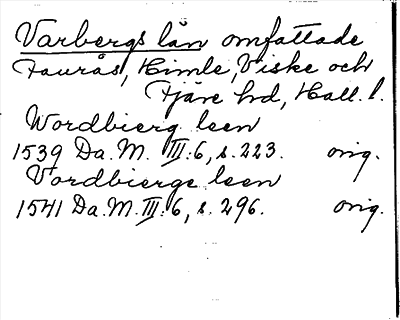 Varbergs län omfattade
Faurås, Himle, Viske och
Fjäre hd, Hall. l.
Wordbierg leen
1539 Da. M. III:6, s. 223. orig.
Vordbierge leen
1541 Da. M. III:6, s. 296. orig.